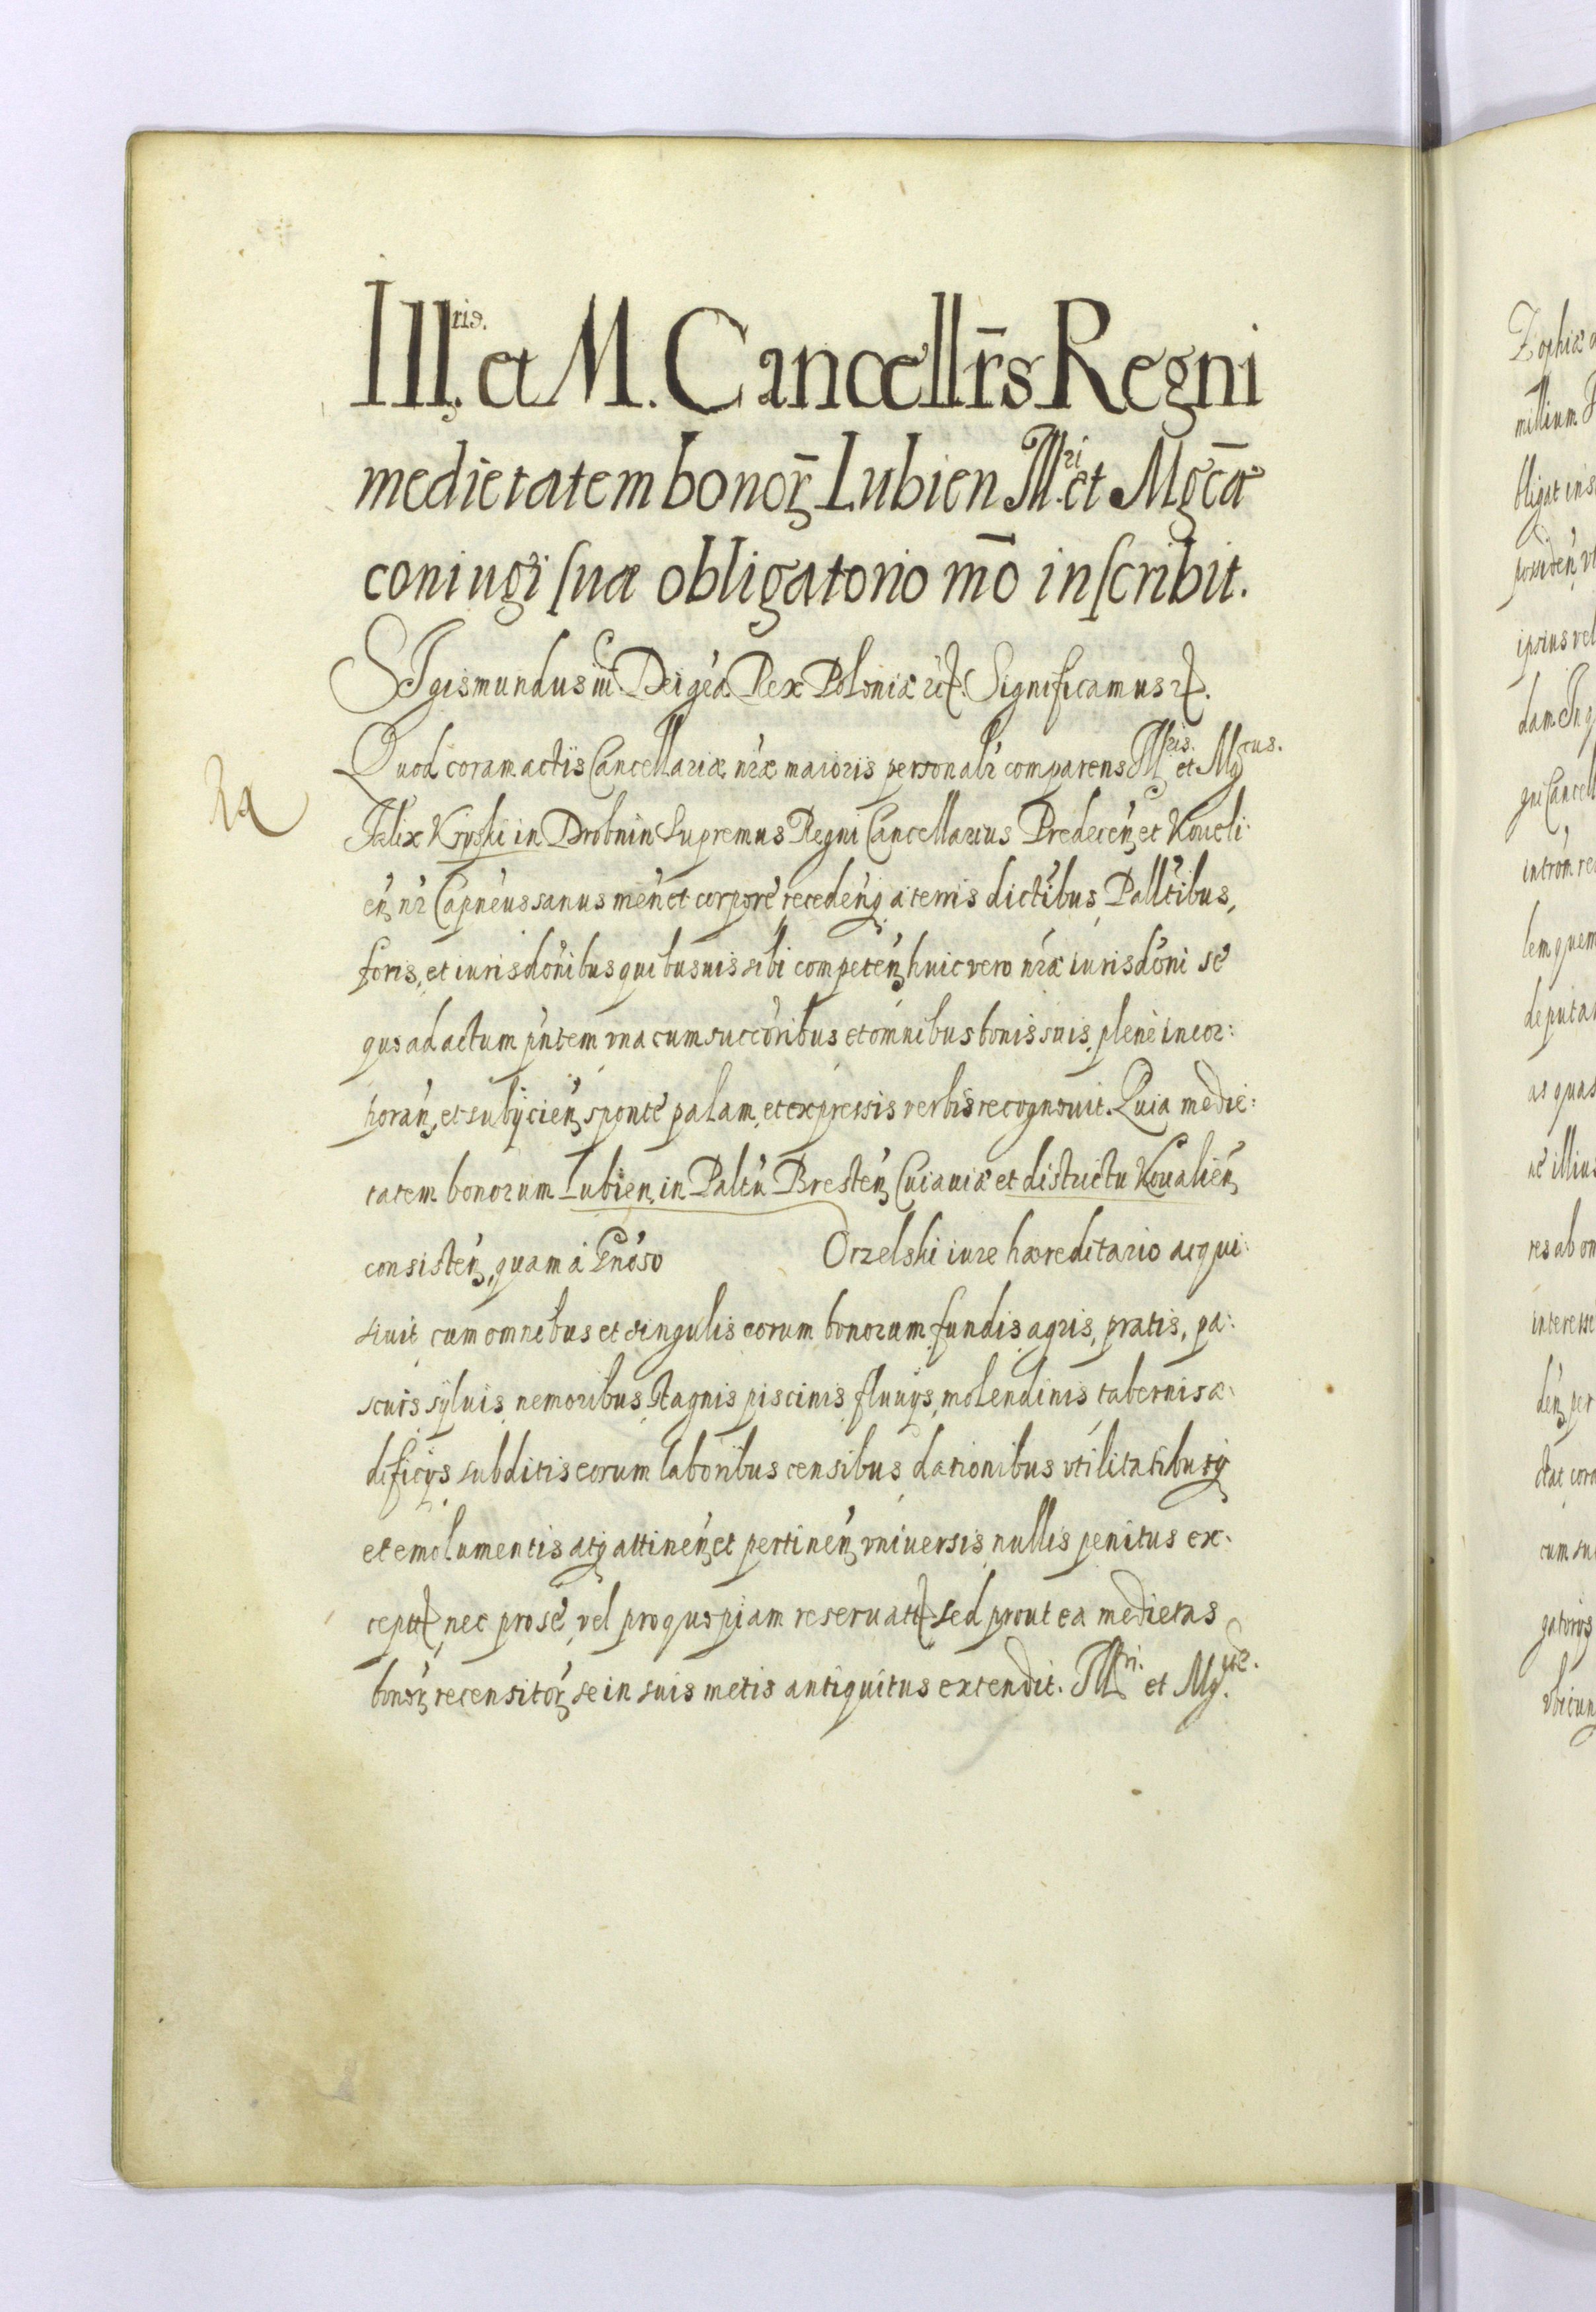 Ill.ris. et M. Cancellr̄s Regni
medietatem bonoꝝ Lubien Ill.ri et Mgcā
coniugi suæ obligatorio mō inscribit.
SIgismundus iii. Dei gr̄a Rex Poloniæ etc. Significamus etc.
Quod coram actis Cancellariæ nr̄æ maioris personalr̄ comparens Illris. et Mgcus.
Felix Kryski in Drobnin Supremus Regni Cancellarius Predecen̄ et Koueli:
en̄ nr̄ Capneus sanus men̄ et corpore recedenq̄ a terris dictibus, Palltibus,
foris, et iurisdōnibus quibusuis sibi competen̄ huic vero nr̄æ iurisdōni se
quo ad actum pn̄tem vna cum succōribus et omnibus bonis suis plene incor:
poran̄, et subijcien̄, sponte palam, et expressis verbis recognouit. Quia medie:
tatem bonorum Lubien, in Paltū Bresten̄ Cuiauiæ et districtu Koualien̄
consisten̄, quam à Gnōso Orzelski iure hæreditario acqui:
siuit cum omnibus et singulis eorum bonorum fundis agris, pratis, pa:
scuis syluis, nemoribus, stagnis piscinis, fluuijs, molendinis tabernis æ:
dificijs subditis eorum laboribus censibus dationibus vtilitatibusq̄
et emolumentis atq̄ attinen̄ et pertinen̄ vniuersis nullis penitus ex:
ceptis, nec pro se, vel pro quopiam reseruatis sed prout ea medietas
bonoꝝ recensitoꝝ se in suis metis antiquitus extendit. Illri. et Mg.